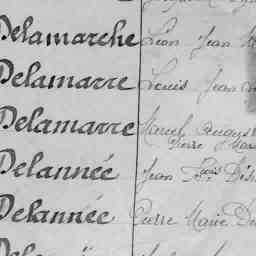 Delamarche Léon Jean
Delamarre Louis Jean
Delamarre Marcel August
Pierre Mar
Delannée Jean Louis Dési
Delannée Pierre Marie De